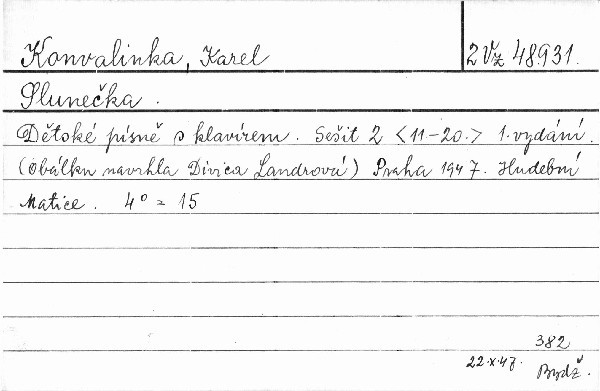 Konvalinka, Karel 2 Vz 48.931.
Slunečka.
Dětské písně s klavírem. Sešit 2 <11-20.> 1. vydání.
(Obálku navrhla Divica Landrová) Praha 1947. Hudební
Matice. 4° = 15
382
22.X.47. Bydž.